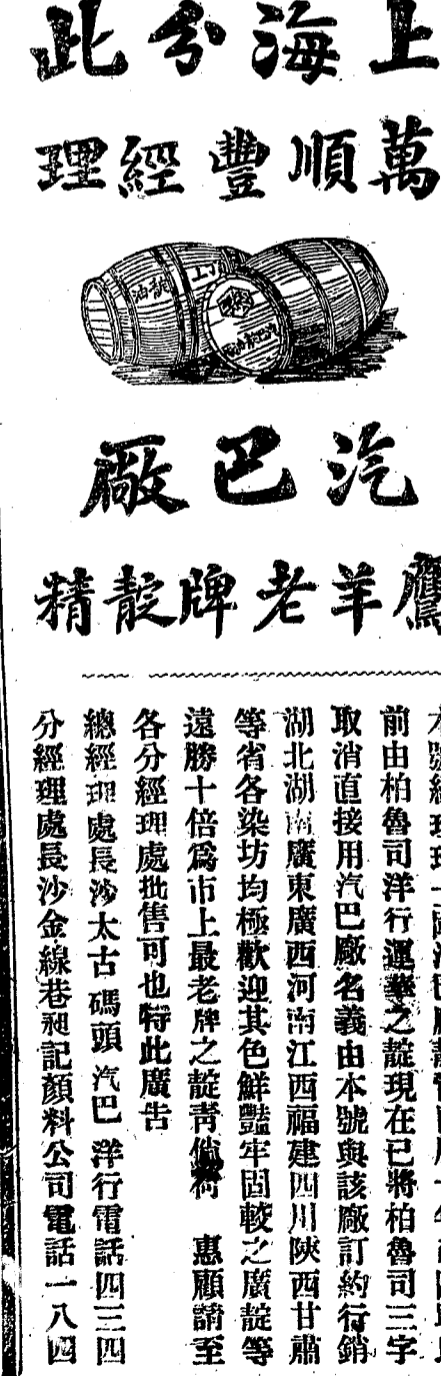 上海分此
萬順豐經理
靛油
汽巴廠
鷹羊老牌靛精
前由柏魯司洋行運華之靛現在已將柏魯司三字
取消直接用汽巴廠名義由本號與該廠訂約行銷
湖北湖南廣東廣西河南江西福建四川陝西甘肅
等省各染坊均極歡迎其色鮮豔牢固較之廣靛等
遠勝十倍爲市上最老牌之靛青倘荷 惠顧請至
各分經理處批售可也特此廣告
總經理處長沙太古碼頭汽巴洋行電話四三四
分經理處長沙金線巷昶記顏料公司電話一八四